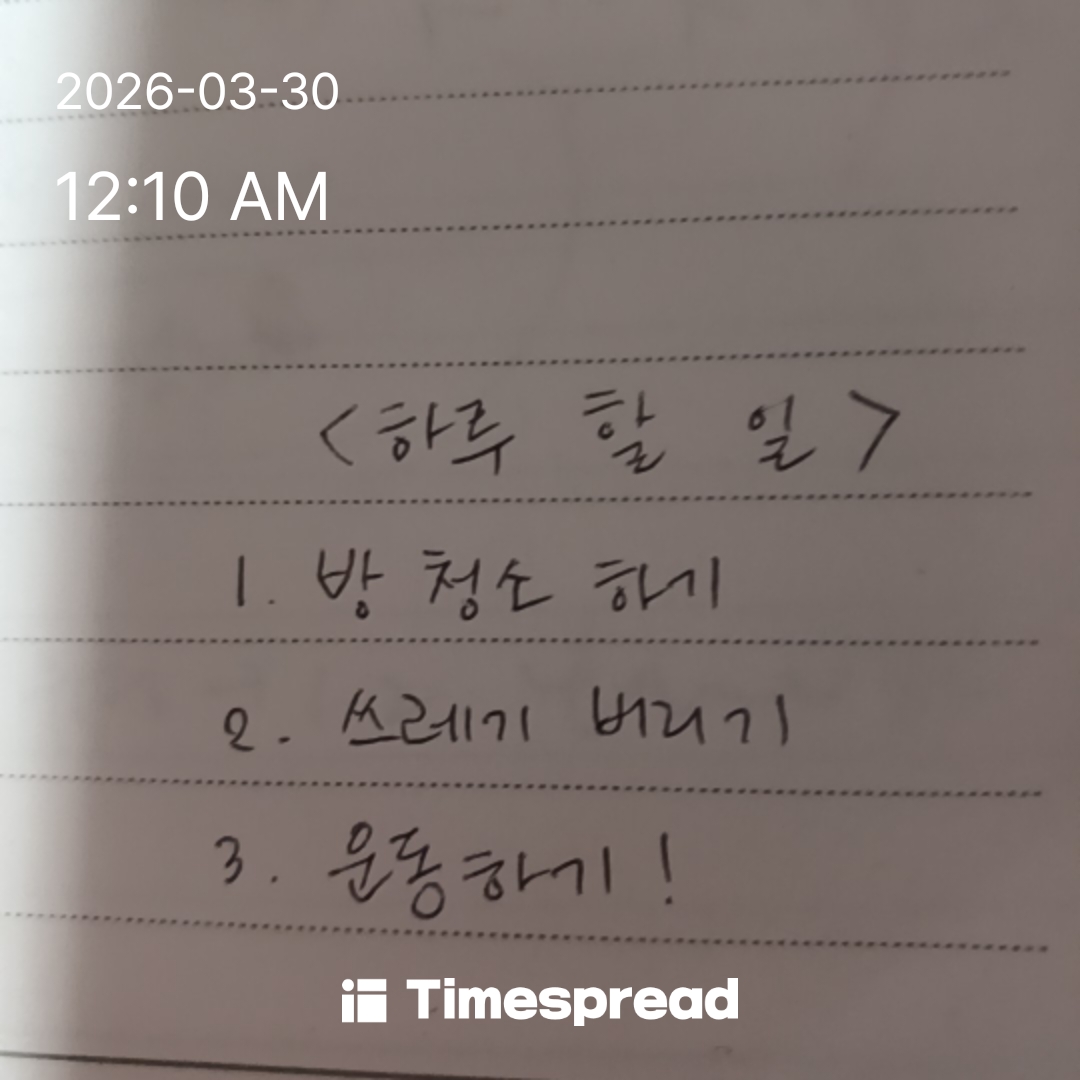 2026-03-30
12:10 AM
<하루 할 일>
1. 방 청소 하기
2. 쓰레기 버리기
3. 운동하기!
Timespread